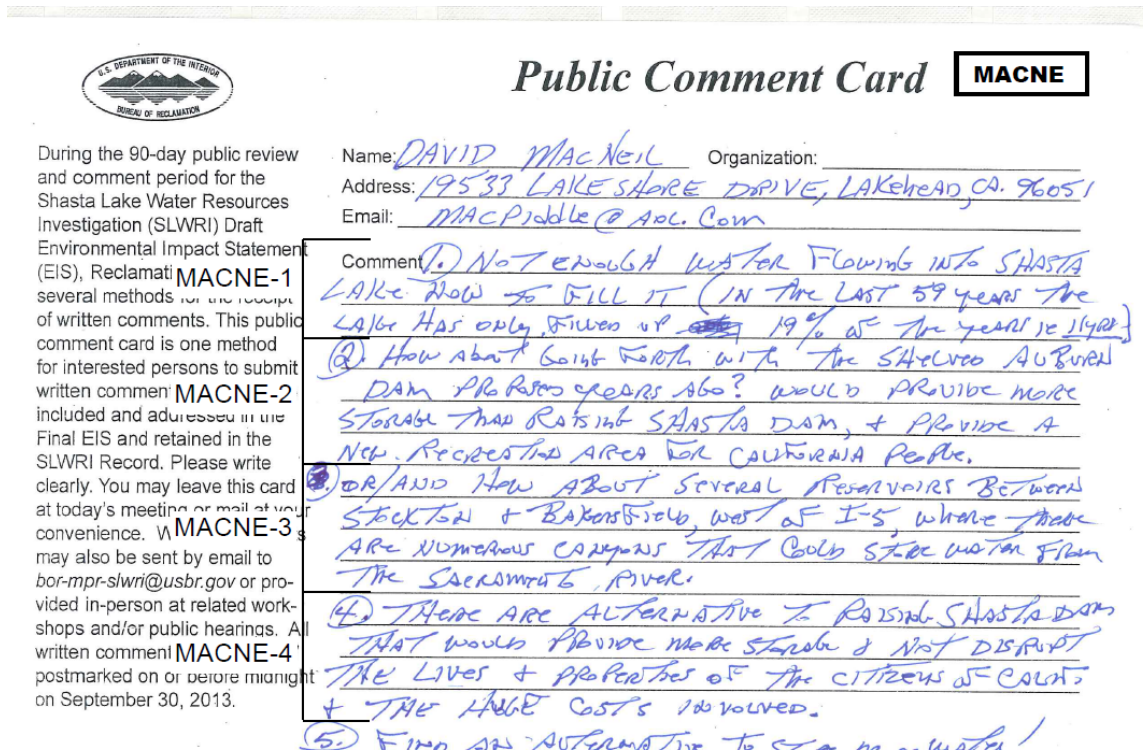 U.S. DEPARTMENT OF THE INTERIOR
BUREAU OF RECLAMATION
Public Comment Card
MACNE
During the 90-day public review
and comment period for the
Shasta Lake Water Resources
Investigation (SLWRI) Draft
Environmental Impact Statement
(EIS), Reclamati
several methods for the receipt
of written comments. This public
comment card is one method
for interested persons to submit
written commen
included and addressed in the
Final EIS and retained in the
SLWRI Record. Please write
clearly. You may leave this card
at today's meeting or mail at your
convenience. W s
may also be sent by email to
bor-mpr-slwri@usbr.gov or pro-
vided in-person at related work-
shops and/or public hearings. All
written comment
postmarked on or before midnight
on September 30, 2013.
MACNE-1
MACNE-2
MACNE-3
MACNE-4
Name: DAVID MACNEIL Organization:
Address: 19533 LAKESHORE DRIVE, LAKEHEAD, CA. 96051
Email: MACPIDDLE@AOL.COM
Comment 1. NOT ENOUGH WATER FLOWING INTO SHASTA
LAKE NOW TO FILL IT (IN THE LAST 59 YEARS THE
LAKE HAS ONLY FILLED UP 19% OF THE YEARS IE 11YRS)
2. HOW ABOUT GOING FORTH WITH THE SHELVED AUBURN
DAM PROPOSED YEARS AGO? WOULD PROVIDE MORE
STORAGE THAN RAISING SHASTA DAM, & PROVIDE A
NEW RECREATION AREA FOR CALIFORNIA PEOPLE.
3. OR/AND HOW ABOUT SEVERAL RESERVOIRS BETWEEN
STOCKTON & BAKERSFIELD, WEST OF I-5, WHERE THERE
ARE NUMEROUS CANYONS THAT COULD STORE WATER FROM
THE SACRAMENTO RIVER.
4. THERE ARE ALTERNATIVE TO RAISING SHASTA DAM
THAT WOULD PROVIDE MORE STORAGE & NOT DISRUPT
THE LIVES & PROPERTIES OF THE CITIZENS OF CALIF.
& THE HUGE COSTS INVOLVED.
5. FIND AN ALTERNATIVE TO STORE MORE WATER!